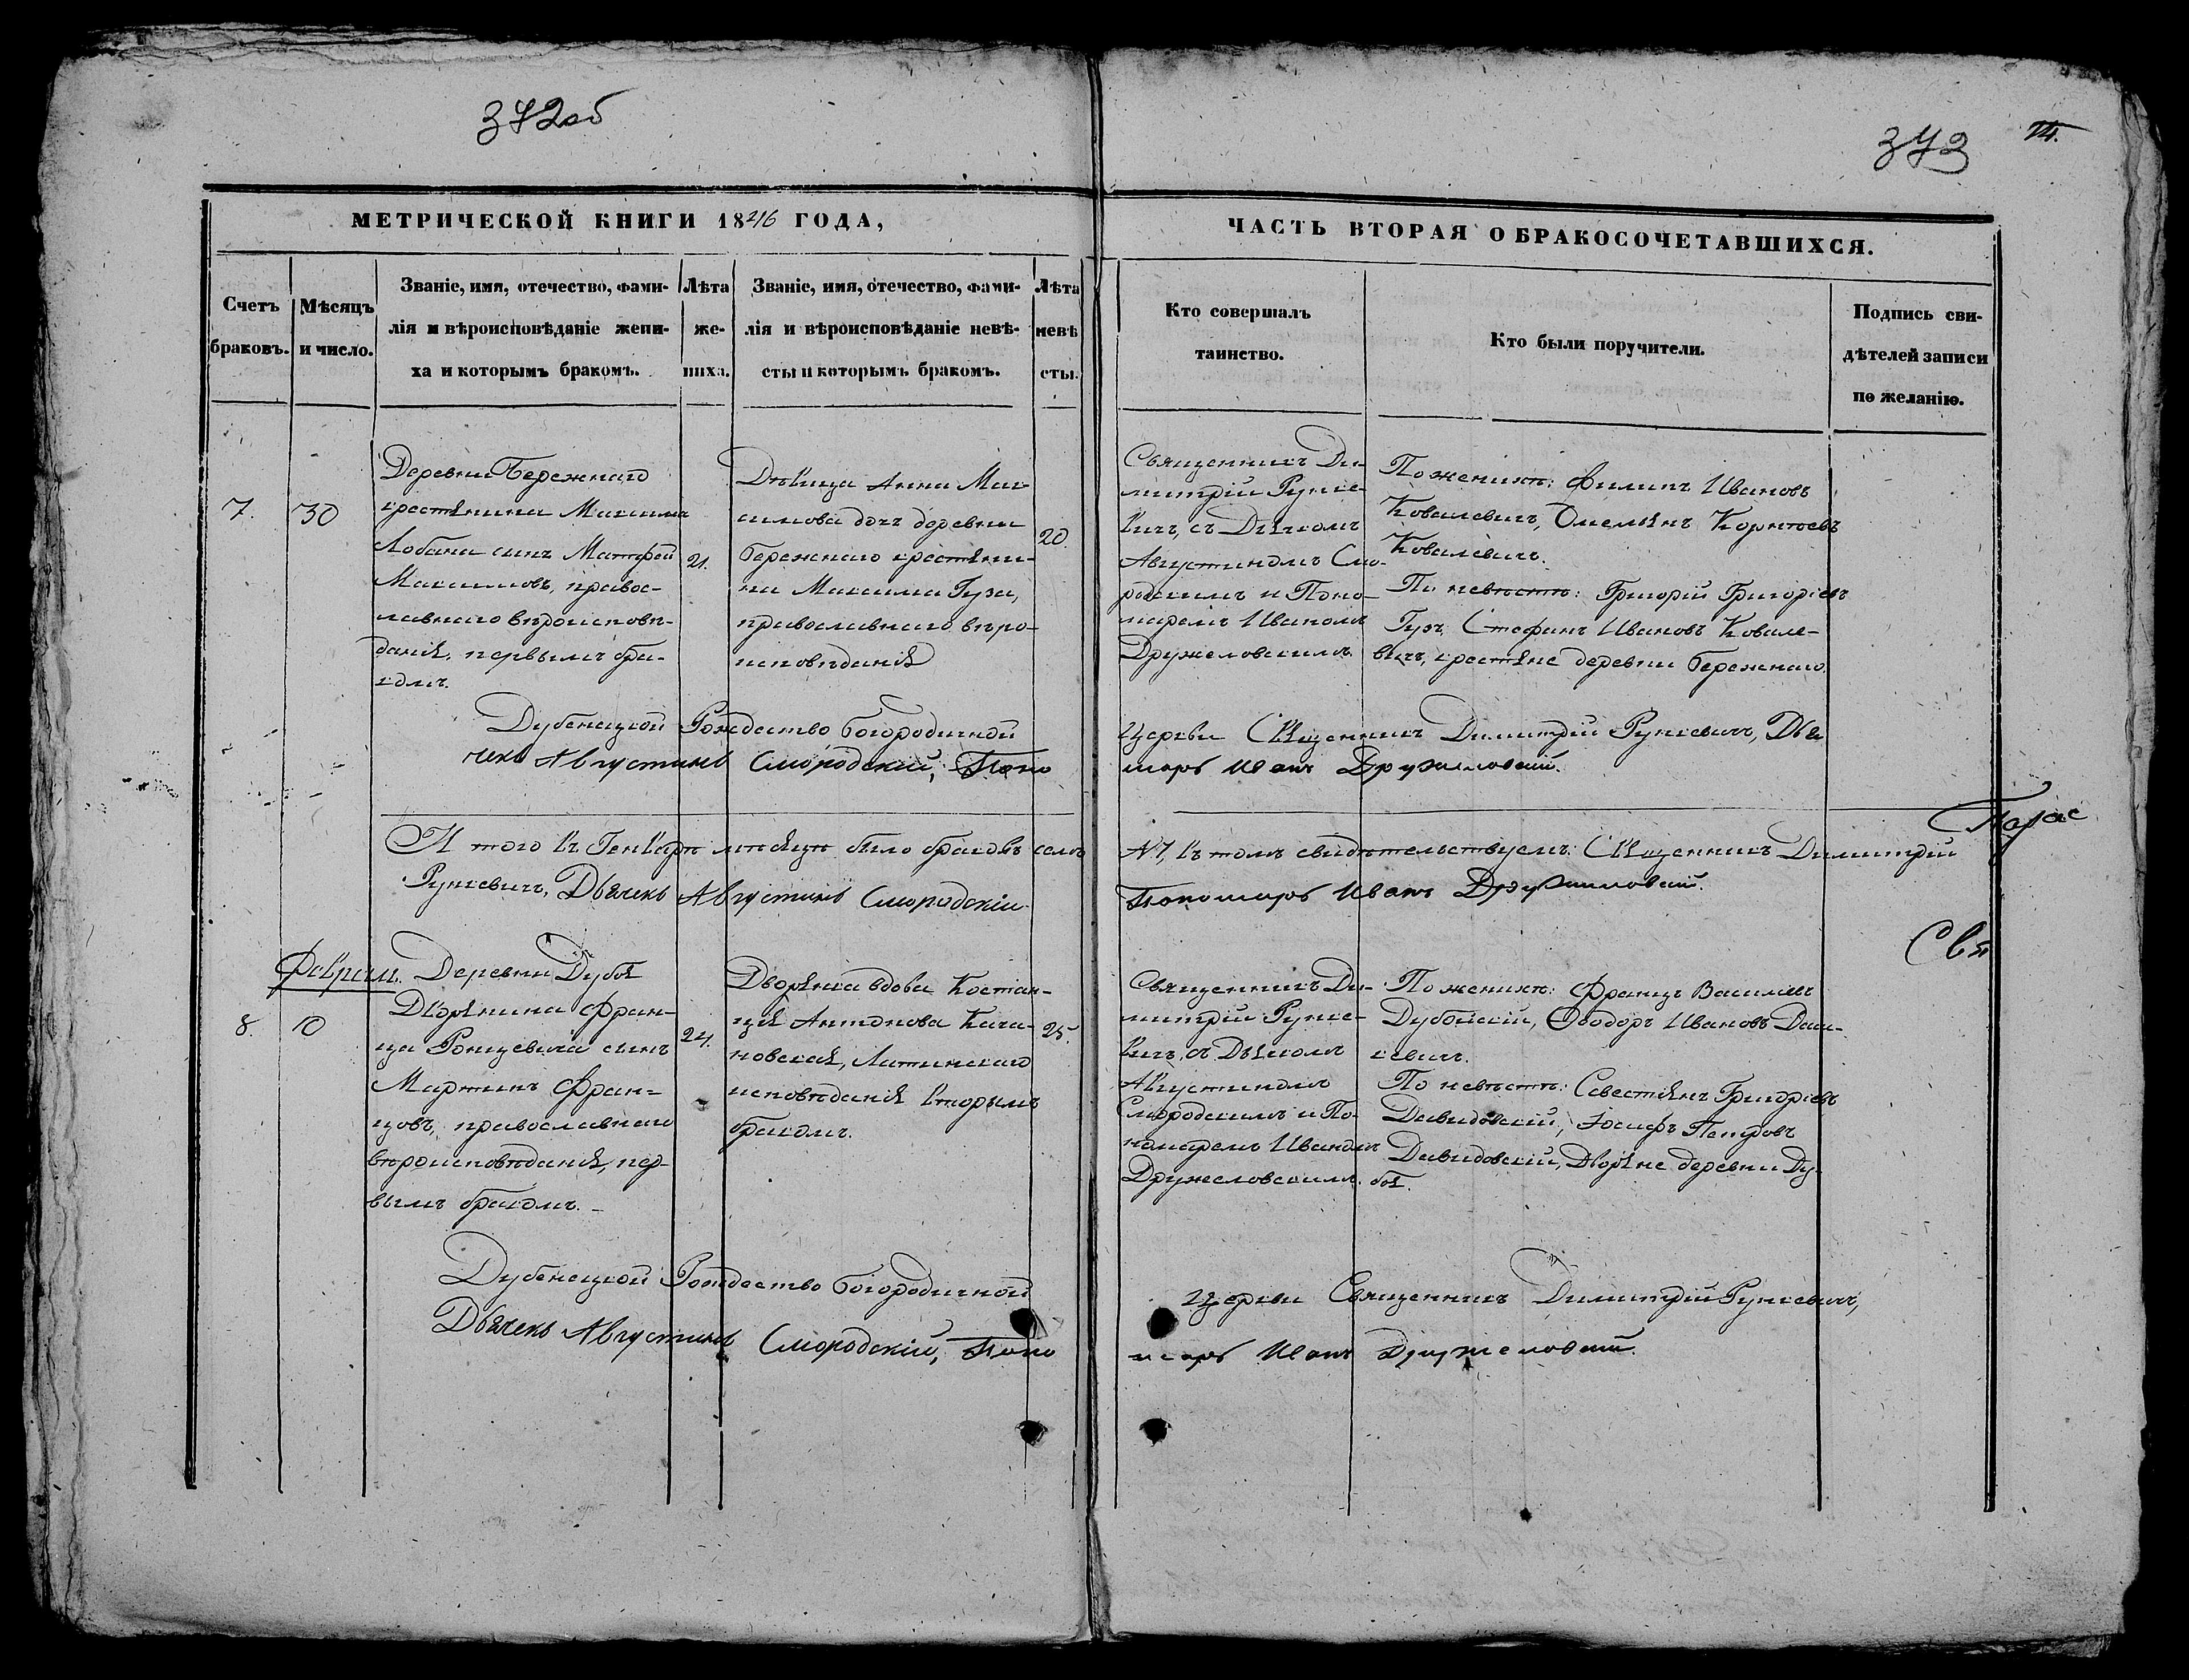 372об
373
74.
МЕТРИЧЕСКОЙ КНИГИ 1846 ГОДА,
ЧАСТЬ ВТОРАЯ О БРАКОСОЧЕТАВШИХСЯ.
Счетъ
браковъ.
Мѣсяцъ
и число.
Званіе, имя, отечество, фами-
лія и вѣроисповѣданіе жени-
ха и которымъ бракомъ.
Лѣта
же-
ниха.
Званіе, имя, отечество, фами-
лія и вѣроисповѣданіе невѣ-
сты и которымъ бракомъ.
Лѣта
невѣ
сты.
Кто совершалъ
таинство.
Кто были поручители.
Подпись сви-
дѣтелей записи
по желанію.
7.
30
Деревни Бережнаго
крестянина Максима
Лобана сынъ Матфей
Максимовъ, правос-
лавнаго вѣроисповѣ-
данія, первымъ бра-
комъ.
21.
Дѣвица Анна Мак-
симова доч деревни
Бережнаго крестяни-
на Максима Гуза,
православнаго вѣро-
исповѣданія
20.
Священникъ Ди-
митрій Рункe-
вичъ, съ Дьякомъ
Августиномъ Смо-
родскимъ и Поно-
маремъ Иваномъ
Дружеловскимъ.
По женихѣ: Филипъ Ивановъ
Ковалевичъ, Омелянъ Корнѣевъ
Ковалевичъ.
По невѣстѣ: Григорій Григоріевъ
Гузъ, Стефанъ Ивановъ Ковале-
вичъ, крестяне деревни Бережнаго.
Дубенецкой Рождество Богородичной Церкви Священникъ Димитрій Рункевичъ, Дья
чекъ Августинъ Смородскій, Поно марь Иванъ Дружиловскій.
И того въ Генварѣ мѣсяцѣ было браковъ семь №7, въ томъ свидѣтельствуемъ: Священникъ Димитрій
Рункевичъ, Дьячекъ Августинъ Смородскій Пономарь Иванъ Дружиловскій.
Свя
Февраль.
8.
10
Деревни Дубоя
Дворянина Фран-
ца Ронцевича сынъ
Мартинъ Фран-
цовъ, православнаго
вѣроисповѣданія, пер-
вымъ бракомъ.
24.
Дворянка вдова Костан-
ція Антонова Кача-
новская, Латинскаго
исповѣданія вторымъ
бракомъ.
25.
Священникъ Ди-
митрій Рунке-
вичъ, съ Дьякомъ
Августиномъ
Смородскимъ и По-
номаремъ Иваномъ
Дружеловскимъ.
По женихѣ: Францъ Василіевъ
Дубойскій, Ѳеодоръ Ивановъ Даш-
кевичъ.
По невѣстѣ: Севестіянъ Григоріевъ
Давидовскій, Іосифъ Петровъ
Давидовскій, Дворяне деревни Ду-
боя.
Дубенецкой Рождество Богородичной Церкви Священникъ Димитрій Рункевичъ,
Дьячекъ Августинъ Смородскій, Поно марь Иванъ Дружеловскій.